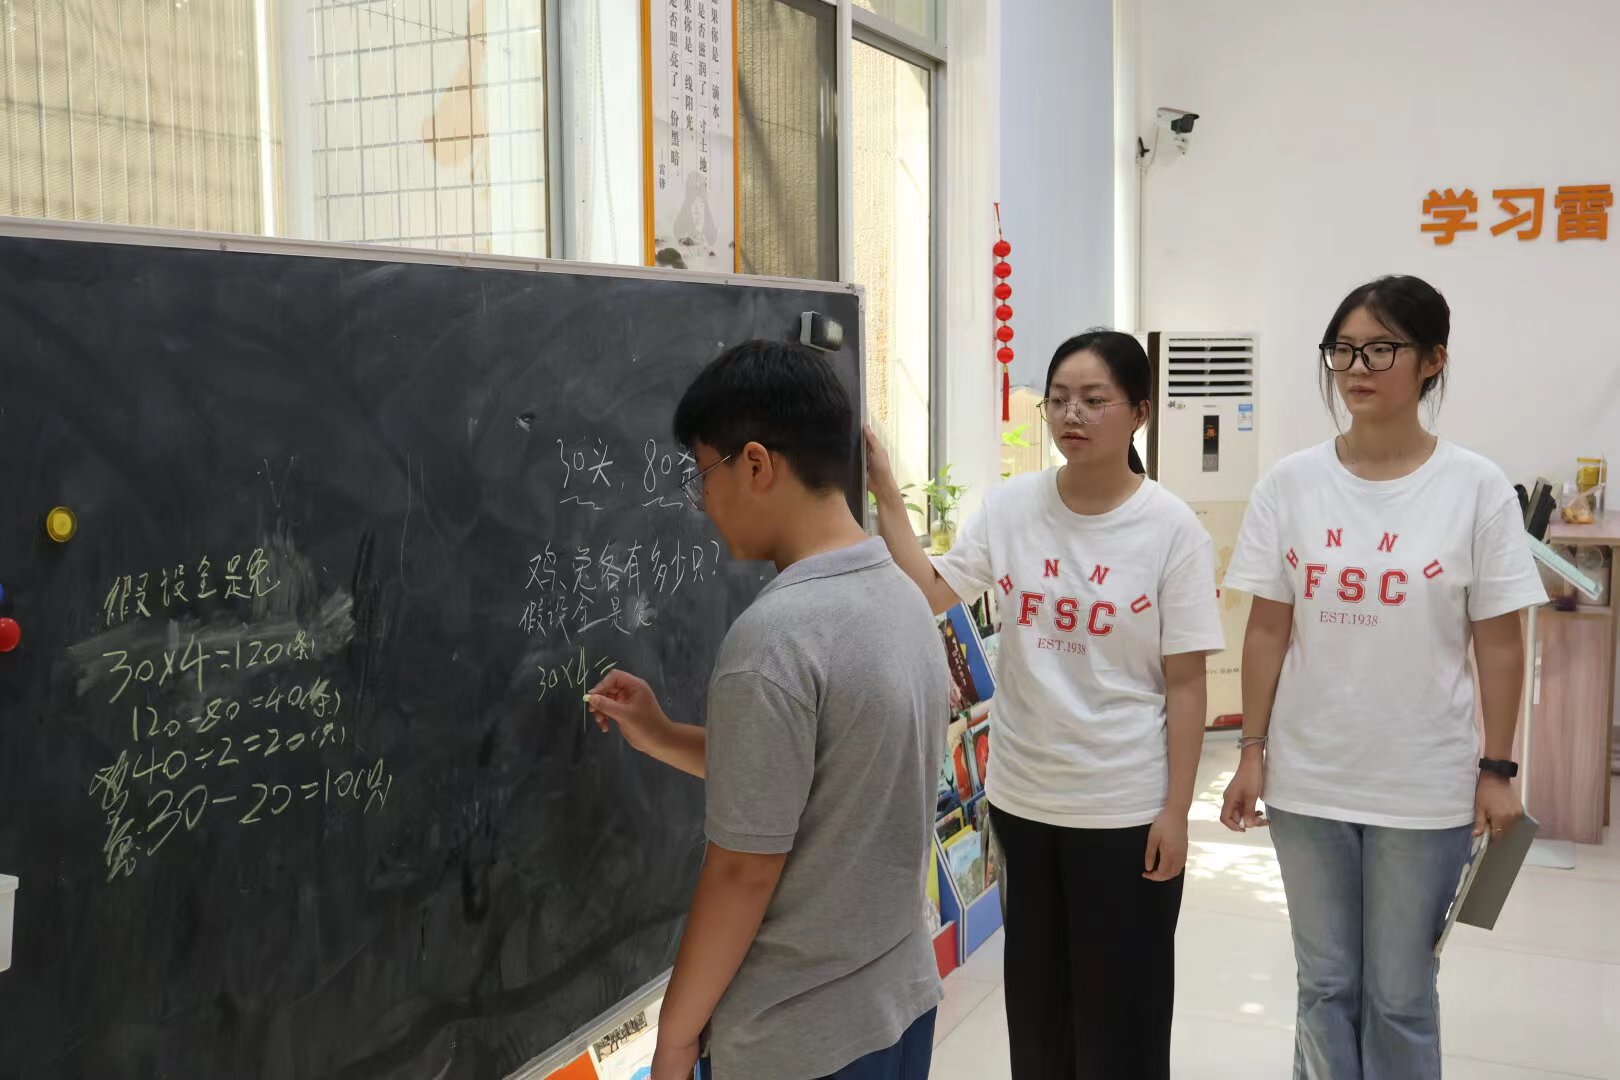 如果你是一滴水，
是否滋润了一寸土地
果你是一线阳光，
是否照亮了一份黑暗。
——雷锋
学习雷
30头，80条
鸡、兔各有多少只？
假设全是兔
30×4=
假设全是兔
30×4=120(条)
120-80=40(条)
鸡40÷2=20(只)
兔:30-20=10(只)
HNNU
FSC
EST.1938
HNNU
FSC
EST.1938